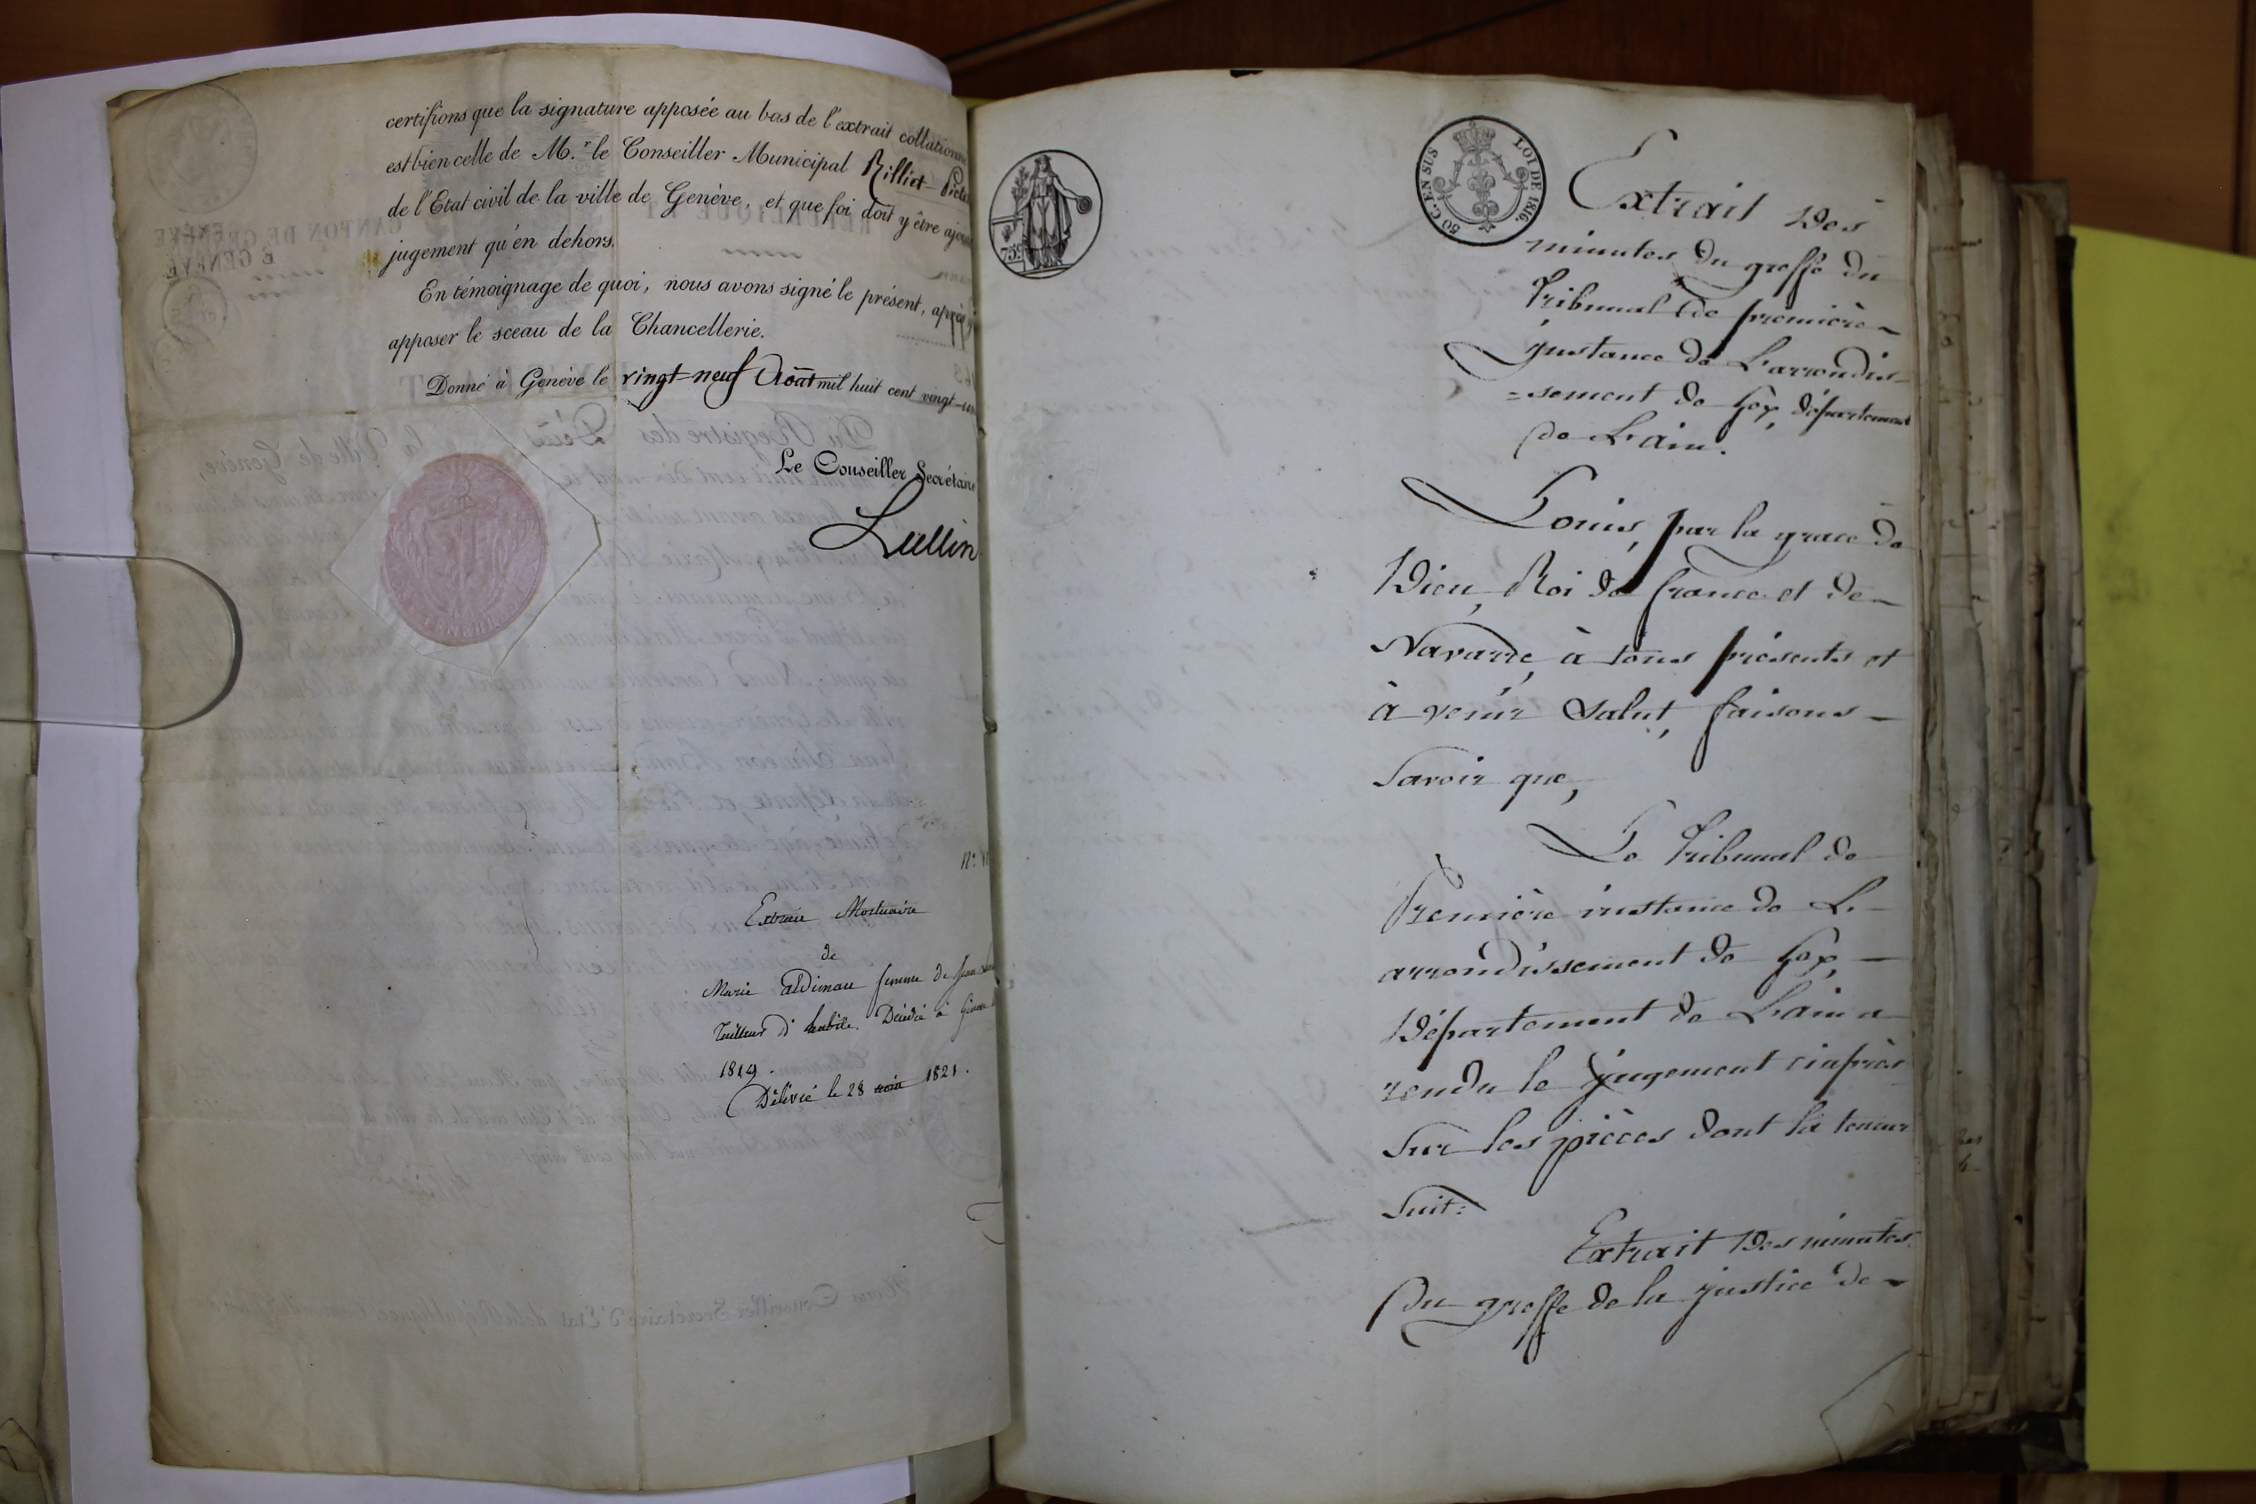 certifions que la signature apposée au bas de l'extrait collationné
est bien celle de M.r le Conseiller Municipal Rilliet-Pictet
de l'Etat civil de la ville de Genève, et que foi doit y être
jugement qu'en dehors.
En témoignage de quoi, nous avons signé le présent, après
apposer le sceau de la Chancellerie.
Donné à Genève le vingt-neuf Août mil huit cent vingt-un
Le Conseiller Secrétaire
Lullin
Extrait Mortuaire
de
Marie femme de Jean
tailleur d'habits. Décédée à Genève
1819.
Délivré le 28 1821.
75c
50 C. EN SUS LOI DE 1816.
Extrait Des
minutes du greffe du
Tribunal de première
instance de L'arrondis-
=sement de Gex, département
de L'ain.
Louis, par la grace de
Dieu, Roi de france et de
Navarre, à tous présents et
à venir Salut, faisons
Savoir que,
Le Tribunal de
Première instance de L-
arrondissement de Gex,
Département de L'ain a
rendu le jugement ciaprès
Sur les pièces dont la teneur
Suit:
Extrait Des minutes
Du greffe de la justice de